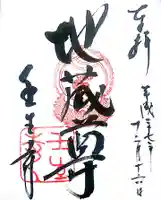 奉拝
平成二七年
十二月十六日
地蔵尊
壬生寺